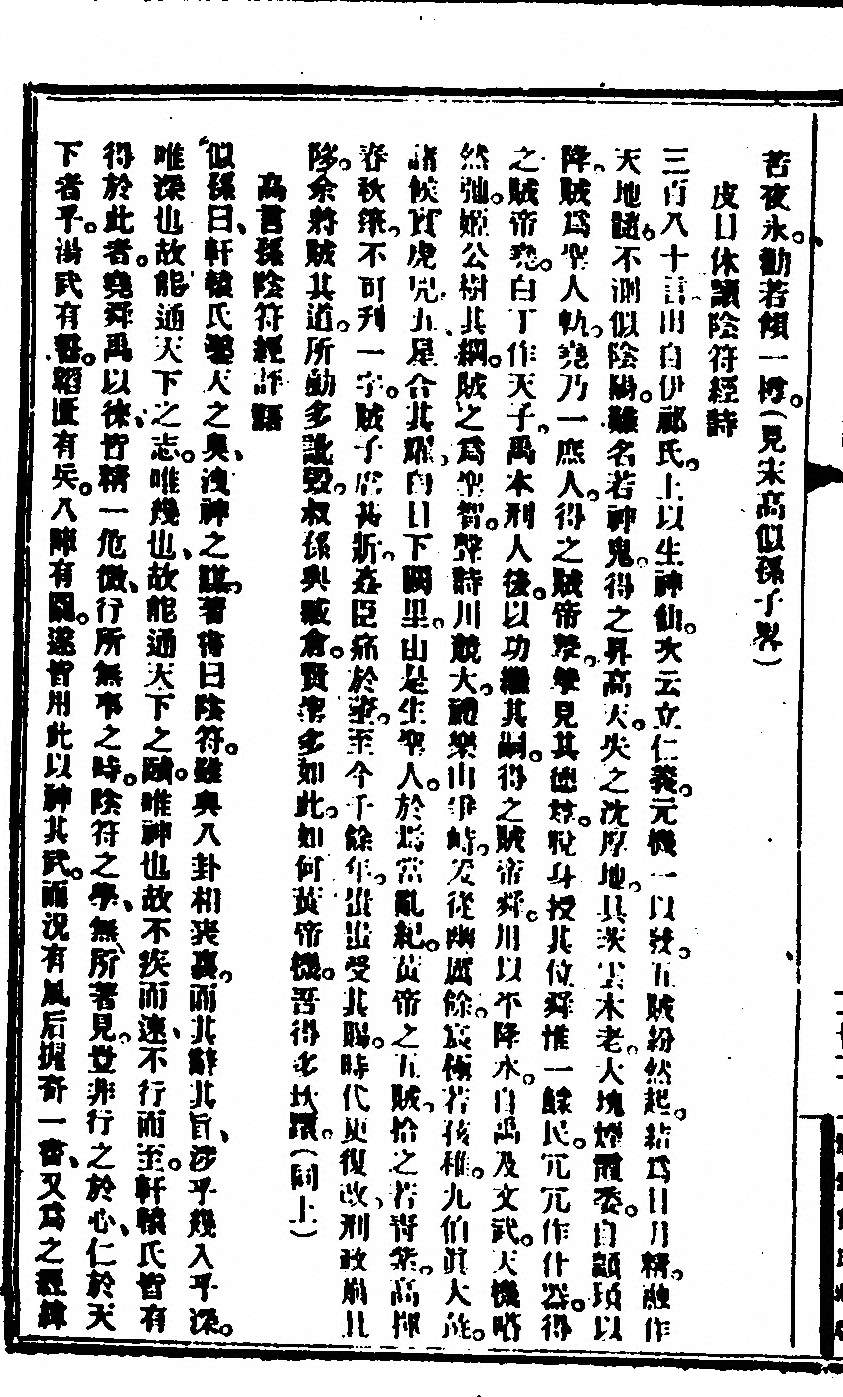 苦夜永。勸若傾一樽。(見宋高似孫子畧)
皮日休讀陰符經詩
三百八十言。出自伊祁氏。上以生神仙。次云立仁義。元機一以發。五賊紛然起。結爲日月精。融作
天地髓。不測似陰陽。難名若神鬼。得之昇高天。失之沈厚地。具茨雲木老。大塊煙霞委。自顓頊以
降。賊爲聖人軌。堯乃一庶人。得之賊帝摯。摯見其德尊。脫身授其位。舜惟一鰥民。冗冗作什器。得
之賊帝堯。白丁作天子。禹本刑人後。以功繼其嗣。得之賊帝舜。用以平降水。自禹及文武。天機唔
然弛。姬公樹其綱。賊之爲聖智。聲詩川競大。禮樂山爭峙。爰從幽厲餘。宸極若孩稚。九伯眞犬彘。
諸侯實虎兕。五星合其耀。白日下闕里。由是生聖人。於焉當亂紀。黃帝之五賊。拾之若靑紫。高揮
春秋筆。不可刋一字。賊子虐甚斨。姦臣痛於箠。至今千餘年。蚩蚩受其賜。時代更復改。刑政崩且
陊。余將賊其道。所動多訛毀。叔孫與臧倉。賢聖多如此。如何黃帝機。吾得多坎躓。(同上)
高言孫陰符經評語
似孫曰、軒轅氏鑿天之奥、洩神之謀。著書曰陰符。雖與八卦相表裏。而其辭其旨、涉乎幾入乎深。
唯深也故能通天下之志。唯幾也、故能通天下之賾。唯神也故不疾而速、不行而至。軒轅氏皆有
得於此者。堯舜禹以徠、皆精一危微、行所無事之時。陰符之學、無所著見。豈非行之於心、仁於天
下者乎。湯武有醫。韜匱有兵。八陣有圖。遂皆用此以神其武。而況有風后握奇一書、又爲之經緯